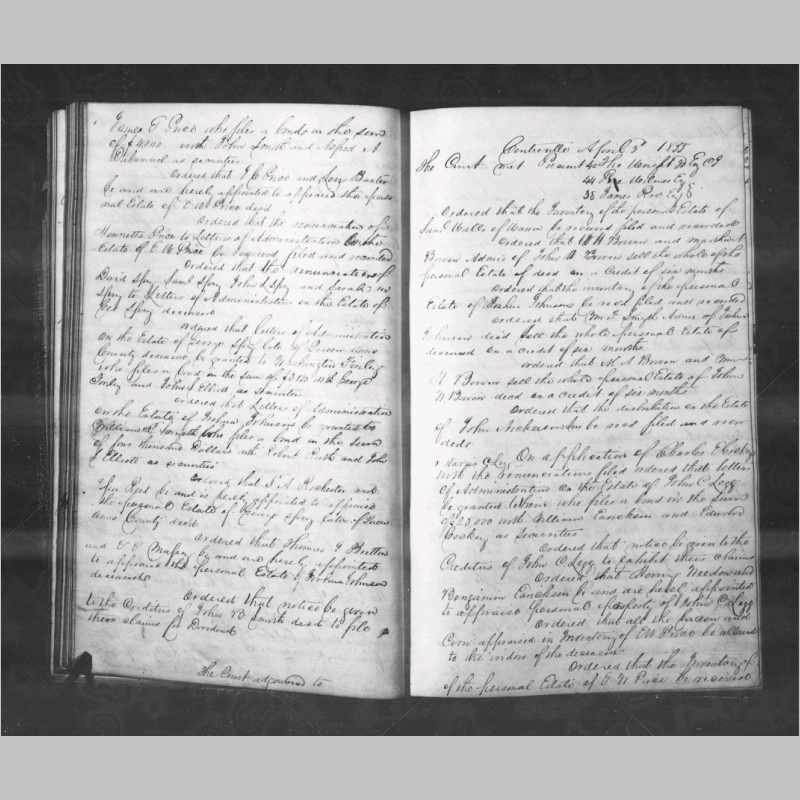 James T Price who files a bond in the sum
of $4000 with John Smith and
as sureties
Ordered that J C Price and Baxter
be and are hereby appointed to appraise the person
nal Estate of E W Price decd
Ordered that the renunciation of
Henrietta Price to Letters of Administration on the
Estate of E W Price be received filed and recorded
Ordered that the renunciation of
David Spry Saml Spry John Spry and Sarah
Spry to Letters of Administration on the Estate of
Geo Spry deceased
Ordered that letters of Administration
on the Estate of George Spry late of Queen Anns
County deceased be granted to Washington Finley
who files a bond in the sum of with George
Finley and John Elliott as Sureties
Ordered that Letters of Administration
on the Estate of Joshua Johnson be granted to
William Smyth who files a bond in the sum
of four thousand Dollars with Robert and John
Elliott as sureties
Ordered that Rochester and
be and is hereby appointed to appraise
the personal Estate of George Spry late of Queen
Anns County decd
Ordered that Thomas J Bratten
and be and are hereby appointed
to appraise the personal Estate of Joshua Johnson
deceased
Ordered that notice be given
to the Creditors of John B Smith decd to file
their claims for Dividend
The Court adjourned to
Centreville April 3d 1855
The Court met Present 40 Tho Esq CJ
44 Esq
38 James Roe Esq
Ordered that the Inventory of the personal Estate of
Saml Wells of Wann be received filed and recorded
Ordered that W H Bowen and
Bowen Admrs of John N Bowen sell the whole of the
personal Estate of decd on a Credit of six months
Ordered that the inventory of the personal
Estate of Joshua Johnson be recd filed and recorded
Ordered that Wm Smyth Admr of Joshua
Johnson decd sell the whole personal Estate of
deceased on a credit of six months
Ordered that M A Bowen and Wm
H Bowen sell the whole personal Estate of John
N Bowen decd on a credit of six months
Ordered that the distribution on the Estate
of John Nickerson be recd filed and recor
ded
Margie C Legg On application of Charles
with the renunciations filed ordered that letters
of Administration on the Estate of John C Legg
be granted to him who files a bond in the sum
of $20.000 with William Errickson and Edward
as Sureties
Ordered that notice be given to the
Creditors of John C Legg to Exhibit their claims
Ordered that Henry Needom and
Benjamin Errickson be and are herel appointed
to appraise personal property of John C Legg
Ordered that all the bacon and
Corn appraised in Inventory of E W Price be allowed
to the widow of the deceased
Ordered that the Inventory of
of the personal Estate of E W Price be received